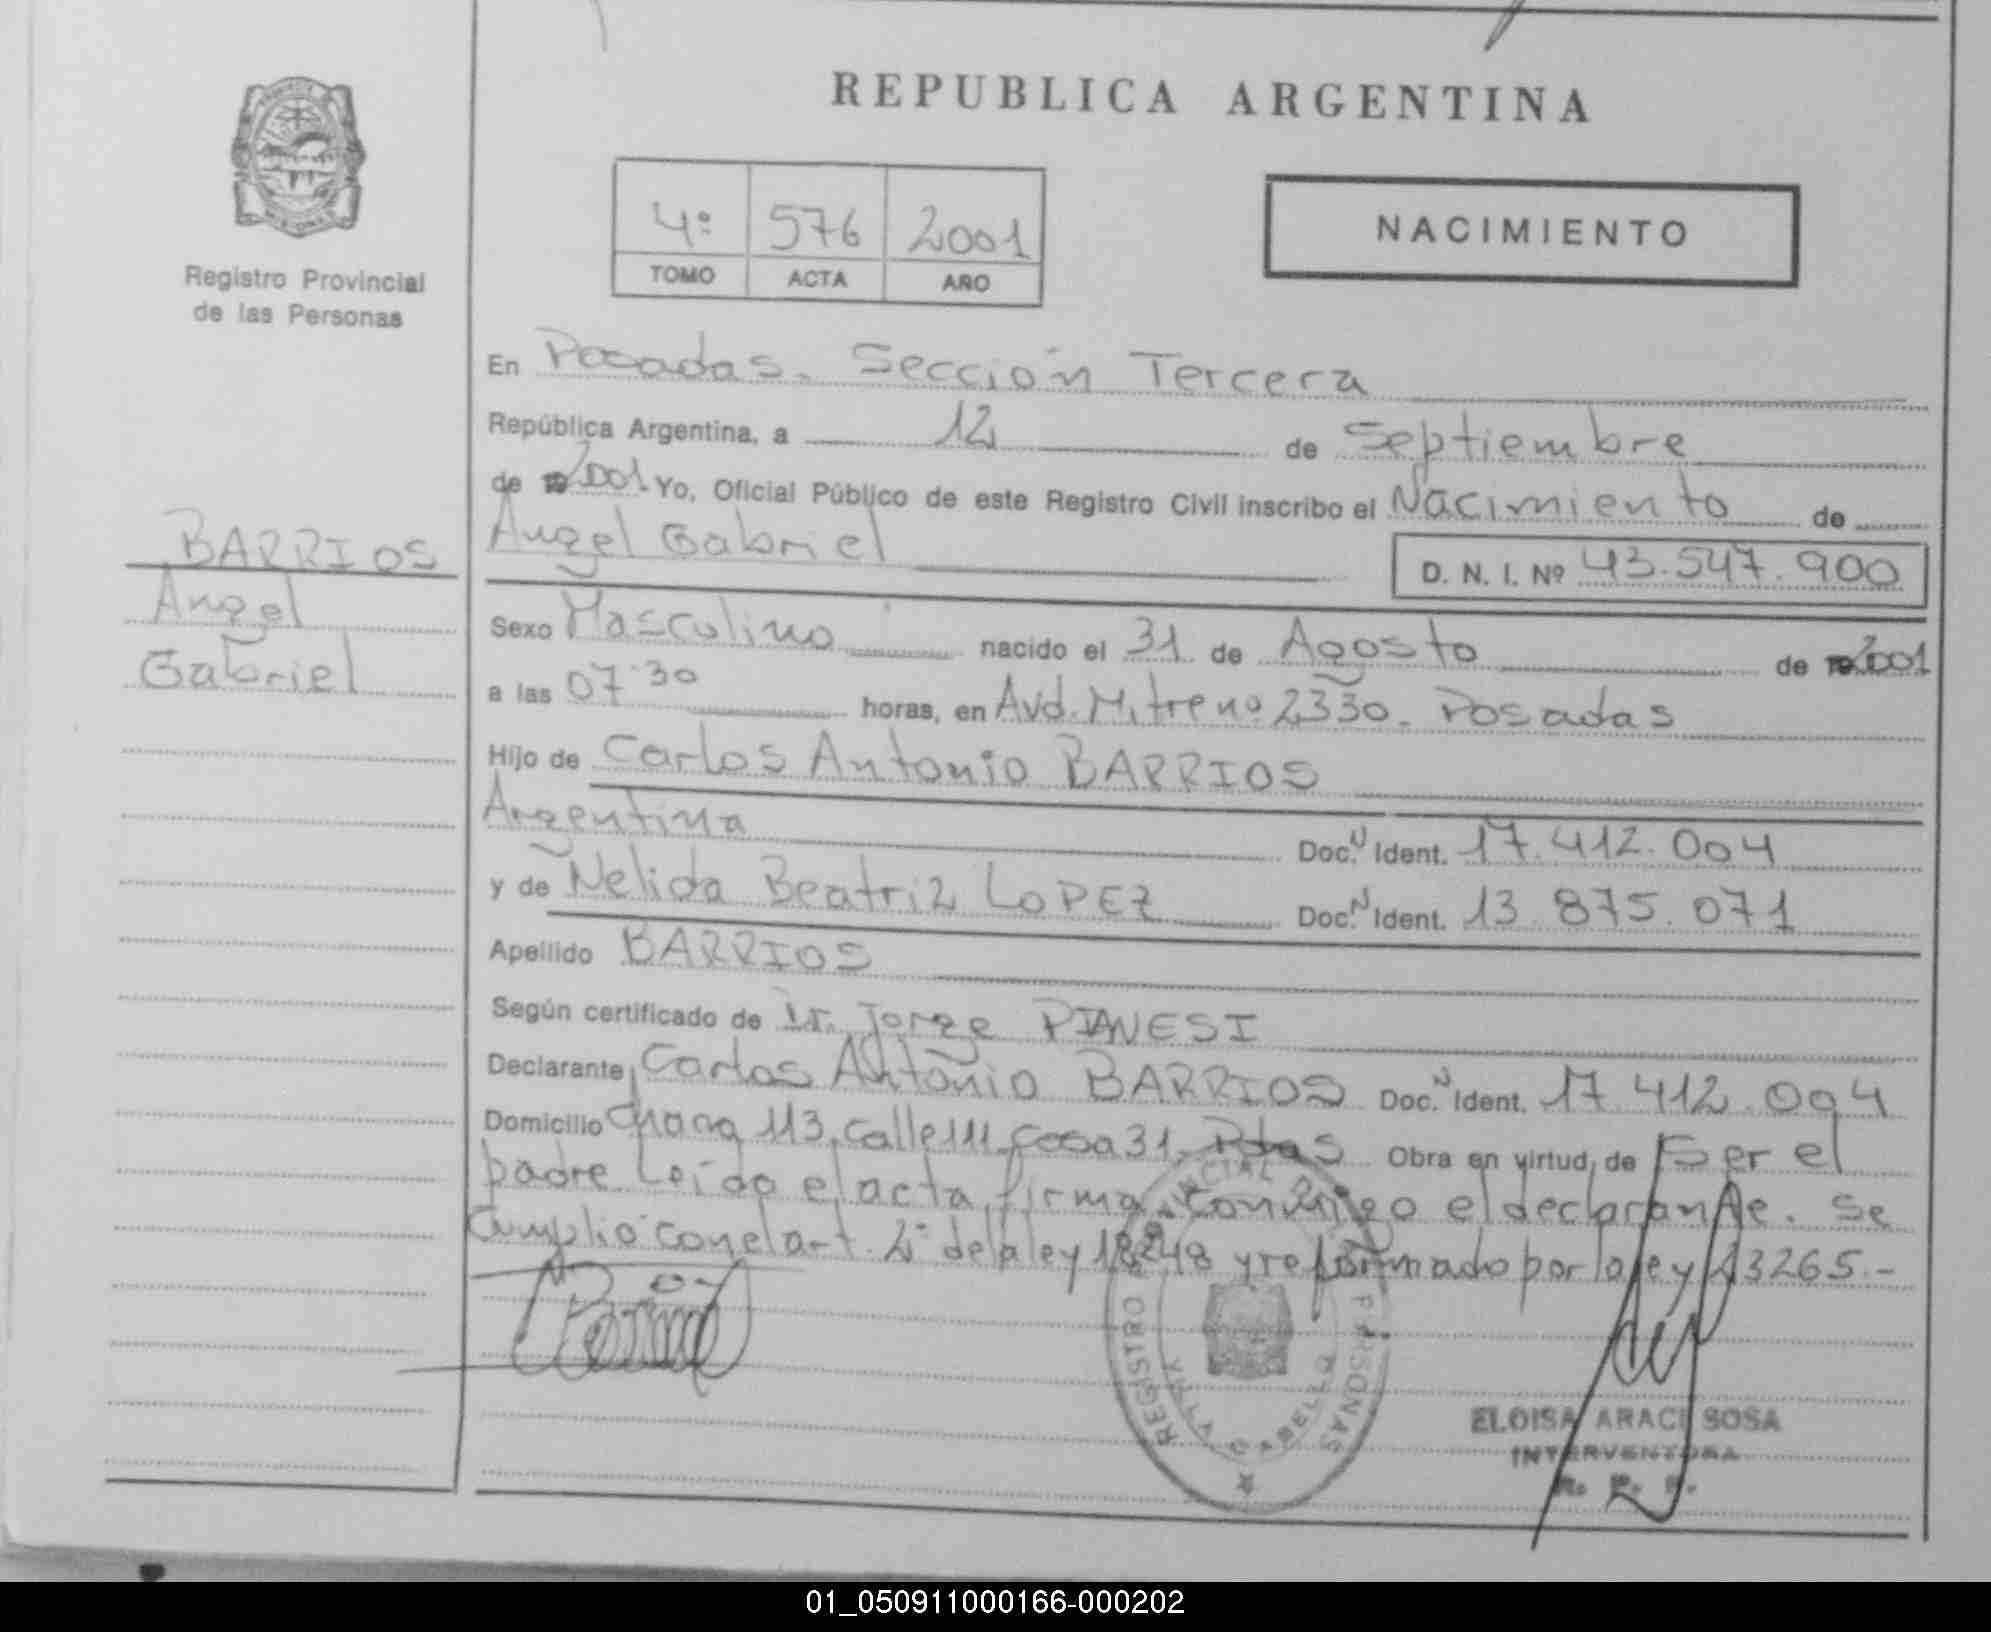 REPUBLICA ARGENTINA
4º 576 2001
TOMO ACTA AÑO
NACIMIENTO
Registro Provincial
de las Personas
BARRIOS
Angel
Gabriel
En Posadas. Sección Tercera
República Argentina, a 12 de Septiembre
de 2001 Yo, Oficial Público de este Registro Civil inscribo el Nacimiento de
Angel Gabriel
D. N. I. Nº 43.547.900
Sexo Masculino nacido el 31 de Agosto de 2001
a las 07:30 horas, en Avd. Mitre nº 2330. Posadas
Hijo de Carlos Antonio BARRIOS
Argentina Doc. N Ident. 17.412.004
y de Nelida Beatriz LOPEZ Doc. N Ident. 13.875.071
Apellido BARRIOS
Según certificado de Dr. Jorge PIANESI
Declarante Carlos Antonio BARRIOS Doc. N Ident. 17.412.004
Domicilio Chacra 113, calle 111 casa 31. Pdas Obra en virtud de Ser el
padre Leído el acta, firma conmigo el declarante. Se
cumplió con el art. 2º de la ley 18248 y reformado por la ley 23265.-
REGISTRO PROVINCIAL DE LAS PERSONAS
VILLA CABELLO
ELOISA ARACI SOSA
INTERVENTORA
R. P. P.
01_050911000166-000202